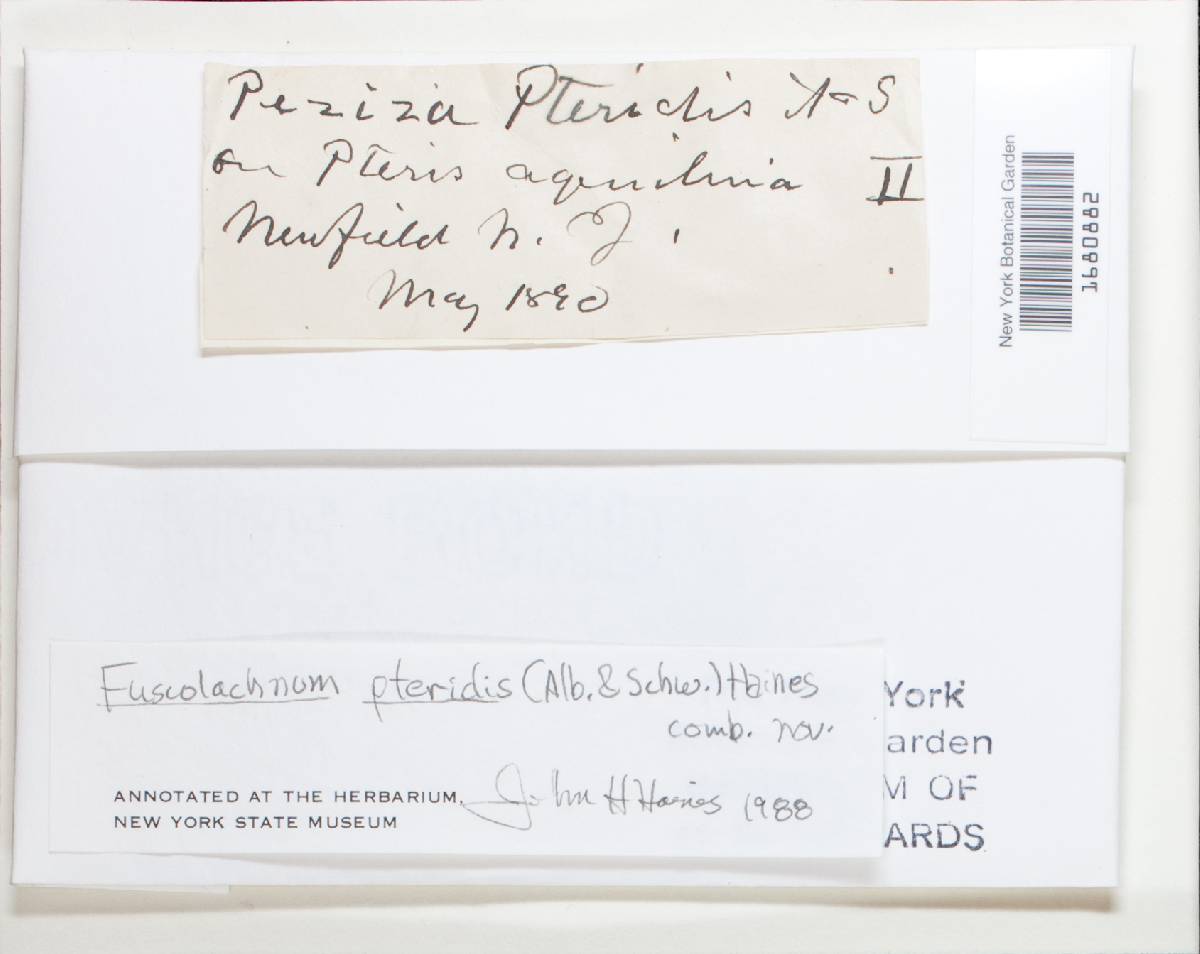 Peziza Pteridis A-S
on Pteris aquilina II
Newfield N. J.
May 1890
New York Botanical Garden
1680882
Fuscolachnum pteridis (Alb. & Schw.) Haines
comb. nov.
ANNOTATED AT THE HERBARIUM,
NEW YORK STATE MUSEUM
John H Haines 1988
York
arden
M OF
ARDS